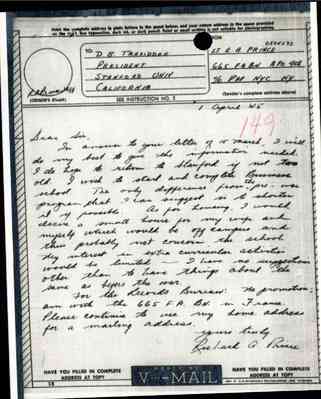 Print the complete address in plain letters in the panel below, and your return address in the space provided
TO:
D. B. TRESIDDER
PRESIDENT
STANFORD UNIV
CALIFORNIA
(CENSOR'S STAMP)
SEE INSTRUCTION NO. 2
LT R A PRINCE
665 FA BN APO 408
% PM NYC NY
(Sender's complete address above)
1 April 45
149
Dear Sir,
In answer to your letter of 10 March, I will
do my best to give the information needed.
I do hope to return to Stanford if not too
old. I wish to start and complete Business
school. The only difference from pre-war
program that I can suggest is to shorten
it if possible. As for housing, I would
desire a small house for my wife and
myself which would be off campus and
thus probably not concern the school
My interest in extra curricular activities
would be limited. I have no suggestion
other than to have things about the
same as before the war.
For the Records Bureau: No promotion;
am with the 665 F.A. Bn. in France.
Please continue to use my home address
for a mailing address.
Yours truly
Richard A. Prince
HAVE YOU FILLED IN COMPLETE
ADDRESS AT TOP?
V-MAIL
HAVE YOU FILLED IN COMPLETE
ADDRESS AT TOP?